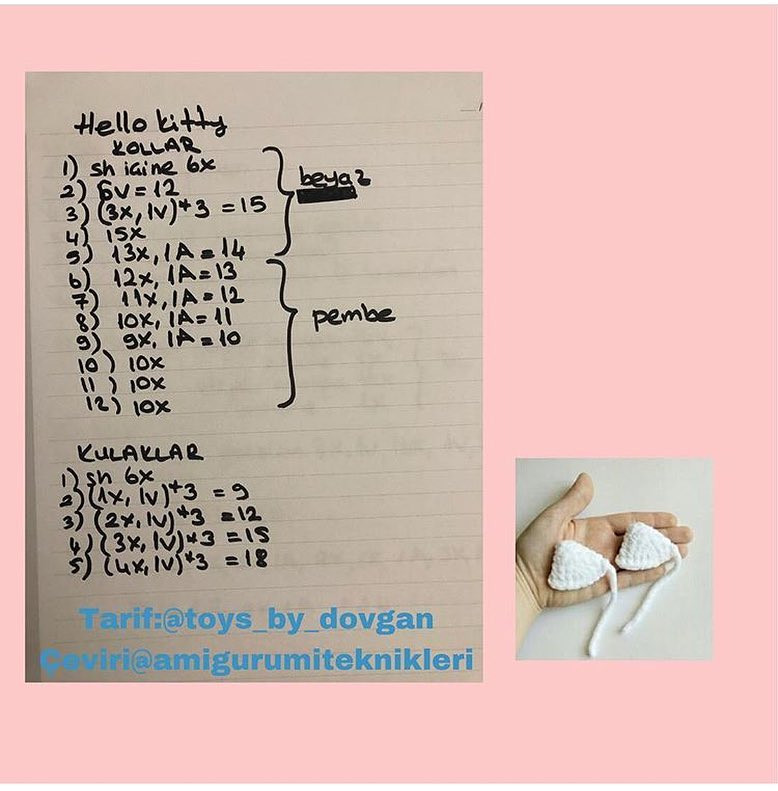 Hello kitty
KOLLAR
1) sh icine 6x
2) 6v = 12
3) (3x, 1v)*3 = 15
4) 15x
5) 13x, 1A = 14
6) 12x, 1A = 13
7) 11x, 1A = 12
8) 10x, 1A = 11
9) 9x, 1A = 10
10) 10x
11) 10x
12) 10x
beyaz
pembe
KULAKLAR
1) sh 6x
2) (1x, 1v)*3 = 9
3) (2x, 1v)*3 = 12
4) (3x, 1v)*3 = 15
5) (4x, 1v)*3 = 18
Tarif:@toys_by_dovgan
Çeviri@amigurumiteknikleri